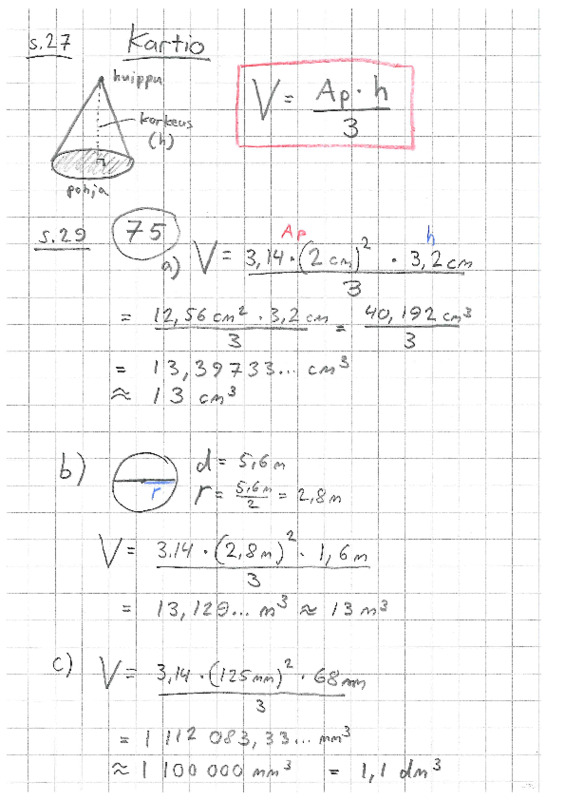 s.27 Kartio
huippu
korkeus
(h)
pohja
V = Ap · h / 3
s.29 75
Ap h
a) V = 3,14 · (2 cm)² · 3,2 cm / 3
= 12,56 cm² · 3,2 cm / 3 = 40,192 cm³ / 3
= 13,39733... cm³
≈ 13 cm³
b) d = 5,6 m
r
r = 5,6m / 2 = 2,8 m
V = 3.14 · (2,8 m)² · 1,6 m / 3
= 13,129... m³ ≈ 13 m³
c) V = 3,14 · (125 mm)² · 68 mm / 3
= 1 112 083,33... mm³
≈ 1 100 000 mm³ = 1,1 dm³